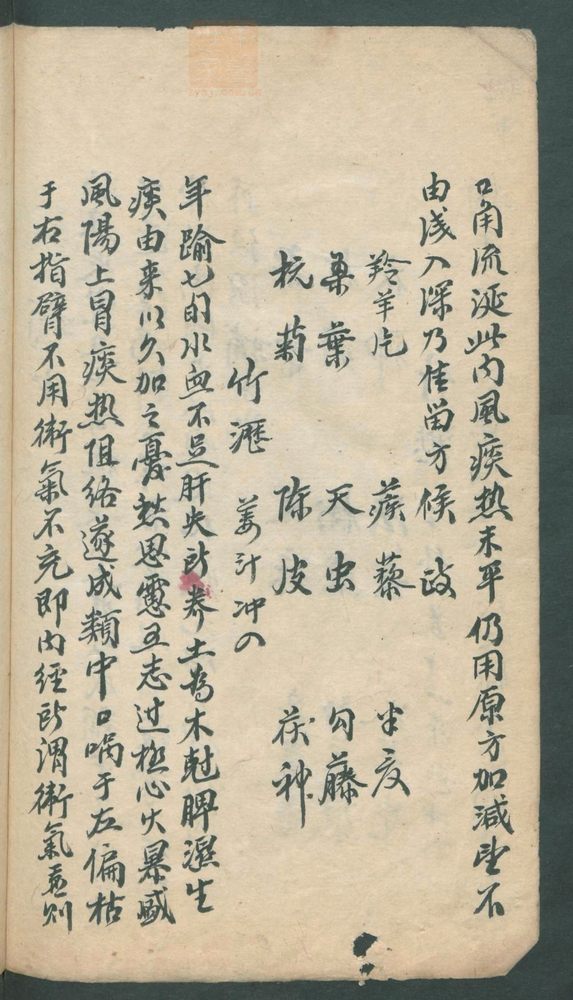 口角流涎此内風痰熱未平仍用原方加減望不
由浅入深乃佳畄方候政
羚羊片 蒺藜 半夏
桑葉 天虫 勾藤
杭菊 陈皮 茯神
竹瀝 姜汁冲
年踰七旬水血不足肝失所养土為木尅脾濕生
痰由来以久加之憂愁思慮五志过極心火暴盛
風陽上冒痰热阻络遂成類中口喎于左偏枯
于右指臂不用衛氣不充即内經所謂衛氣虚则